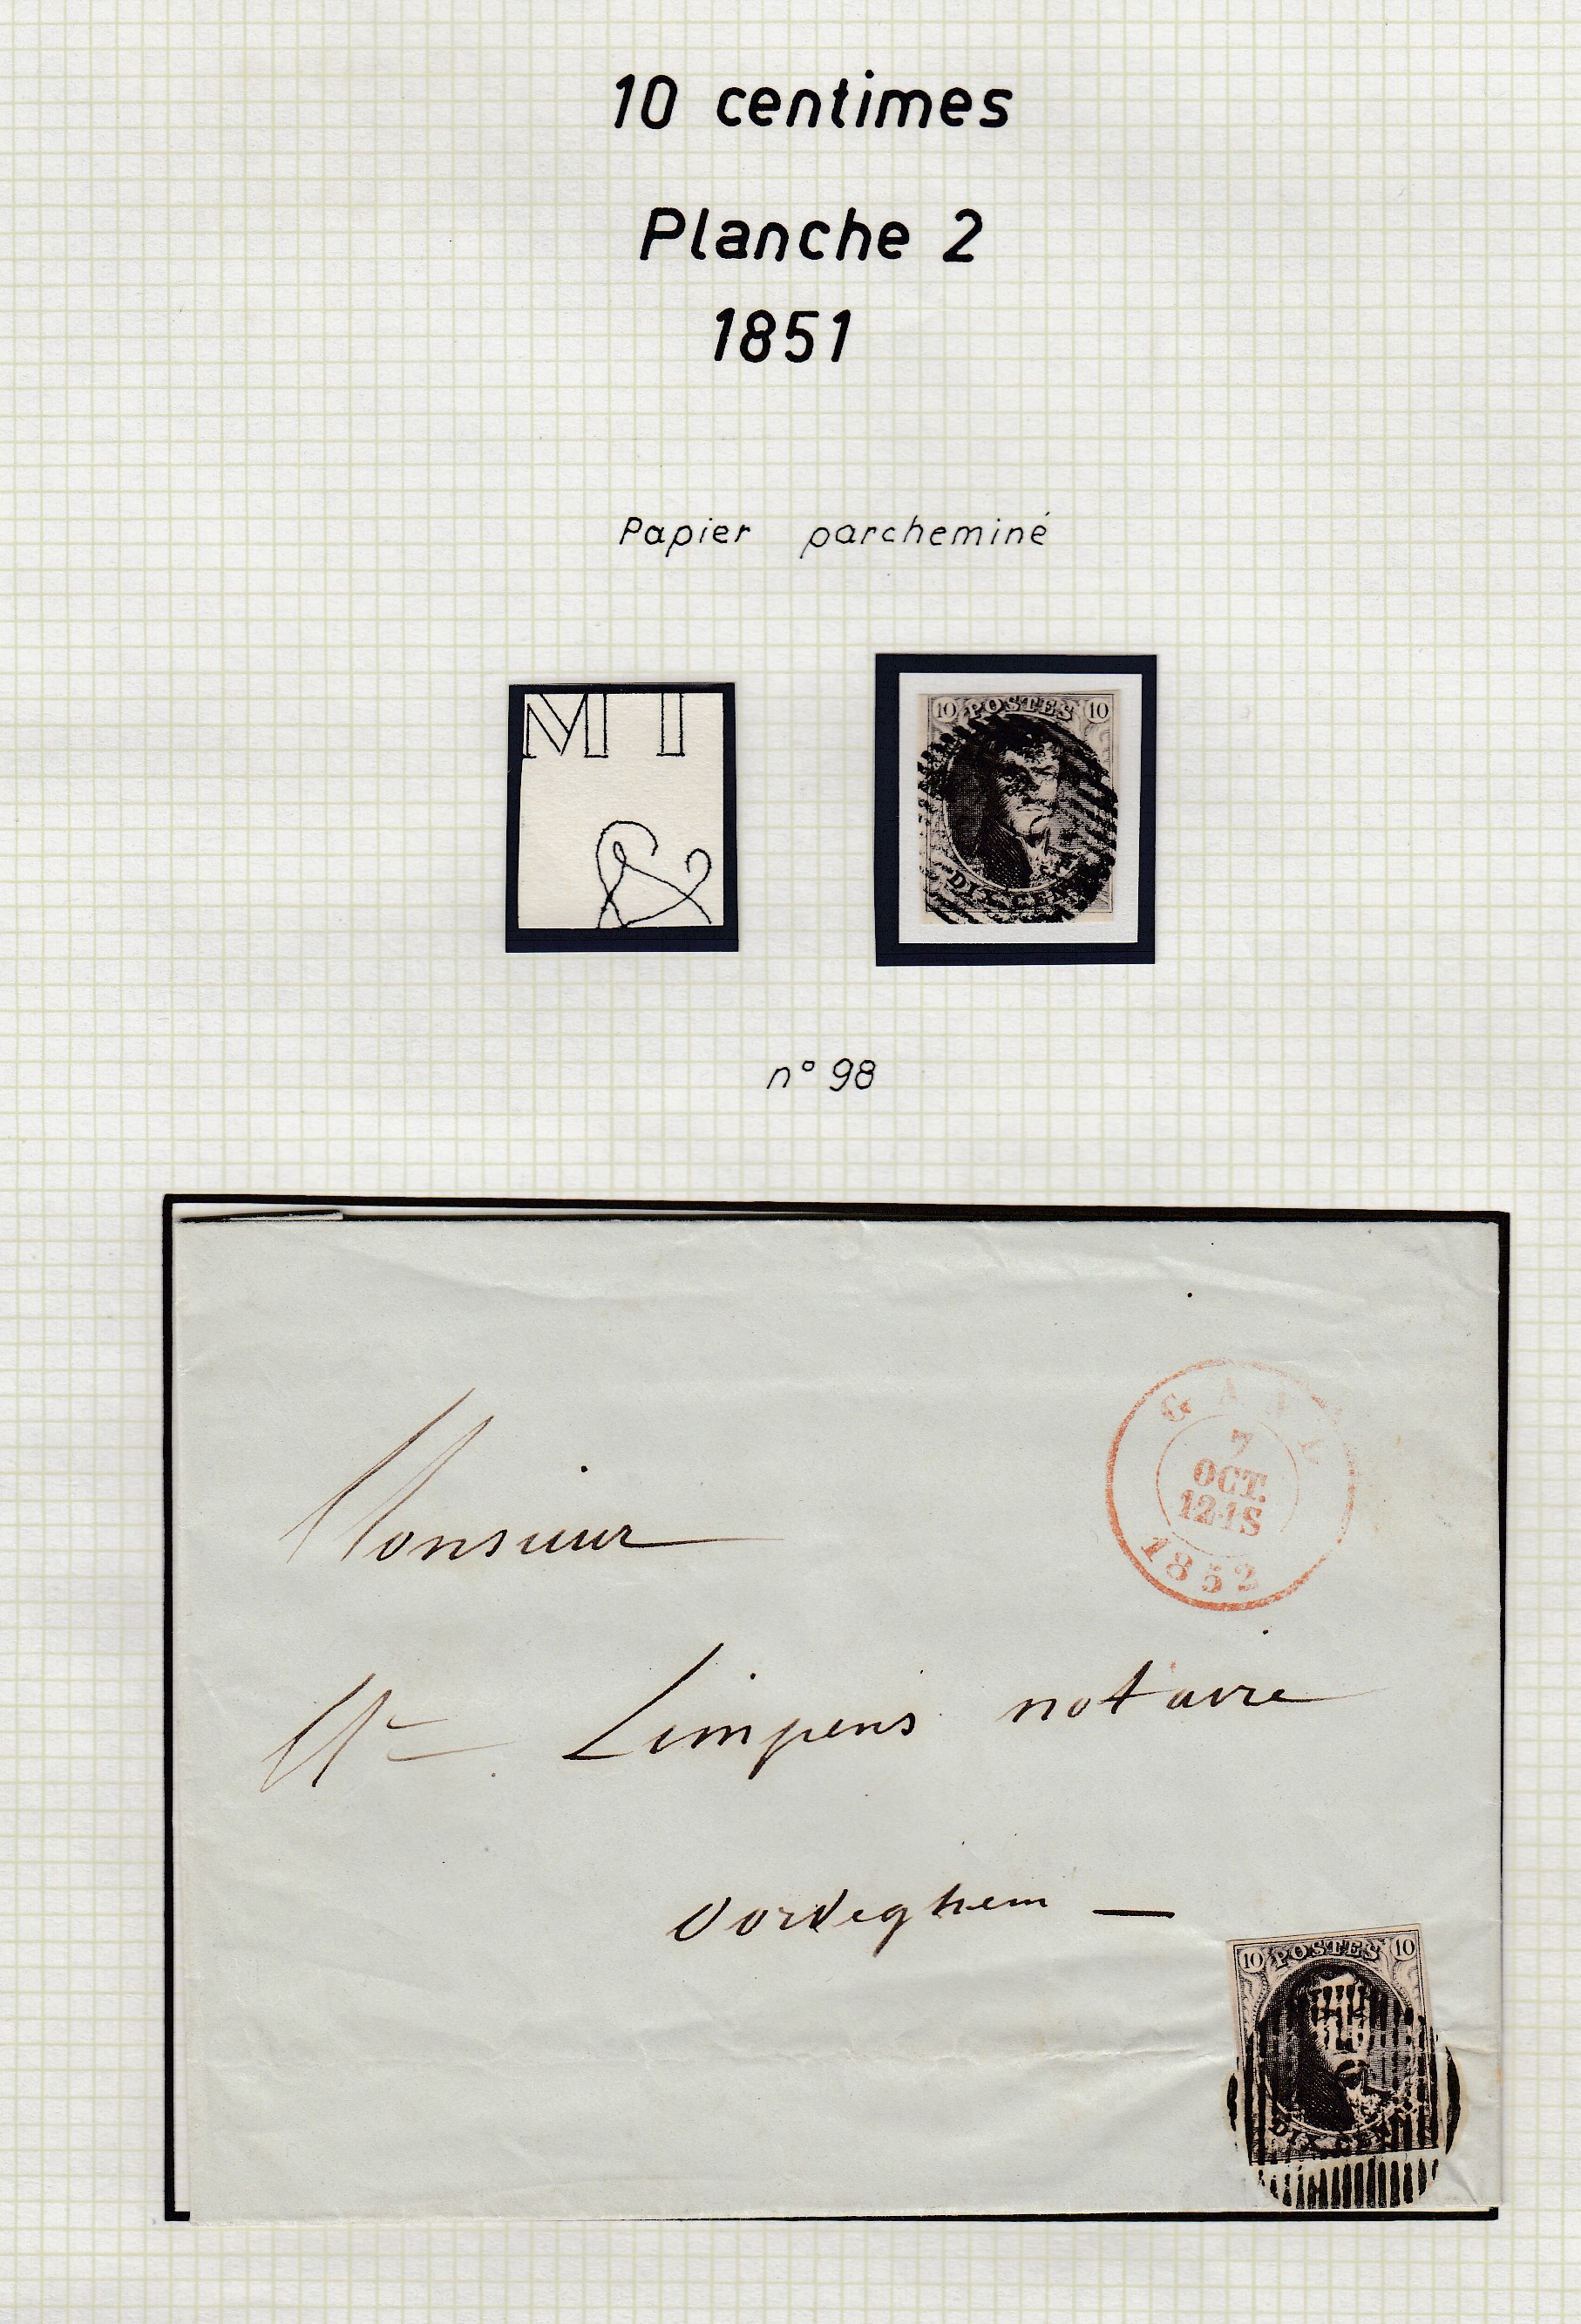 10 centimes
Planche 2
1851
Papier parcheminé
M I
&
10 POSTES 10
DIX CEN
n° 98
GAND
7
OCT.
12-1S
1852
Monsieur
Mr Limpens notaire
Oordeghem —
10 POSTES 10
DIX CEN